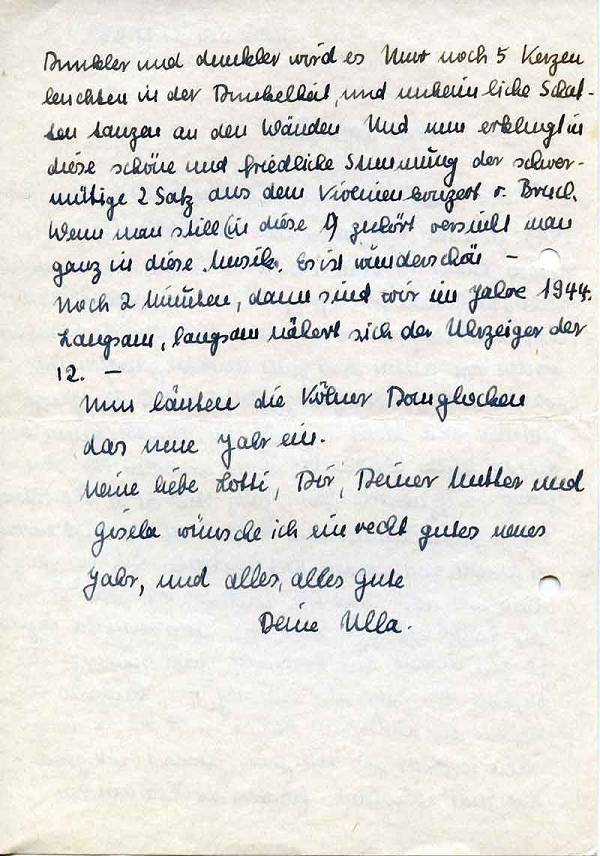 Dunkler und dunkler wird es Nur noch 5 Kerzen
leuchten in der Dunkelheit, und unheimliche Schat-
ten tanzen an den Wänden Und nun erklingt in
diese schöne und friedliche Stimmung der schwer-
mütige 2 Satz aus dem Violinenkonzert v. Bruch.
Wenn man still (in diese zuhört versinkt man
ganz in diese Musik. Es ist wunderschön –
Noch 2 Minuten, dann sind wir im Jahre 1944.
Langsam, langsam nähert sich der Uhrzeiger der
12. –
Nun läuten die Kölner Domglocken
das neue Jahr ein.
Meine liebe Lotti, Dir, Deiner Mutter und
Gisela wünsche ich ein recht gutes neues
Jahr, und alles, alles Gute
Deine Ulla.